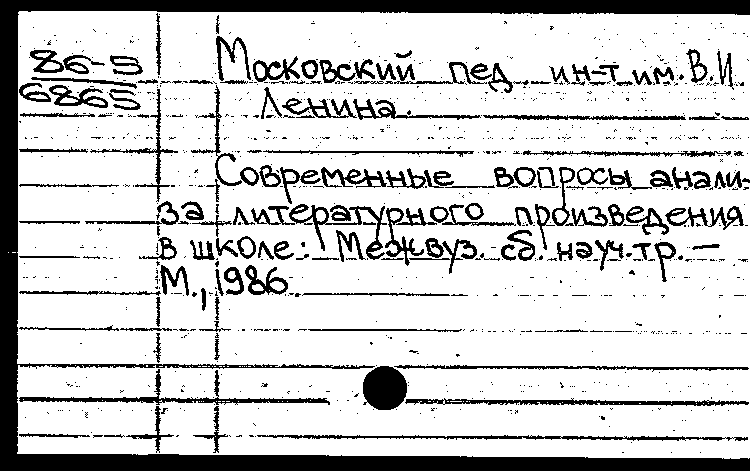 86-5
6865
Московский пед ин-т им. В.И.
Ленина.
Современные вопросы анали-
за литературного произведения
в школе: Межвуз. сб. науч. тр. —
М., 1986.